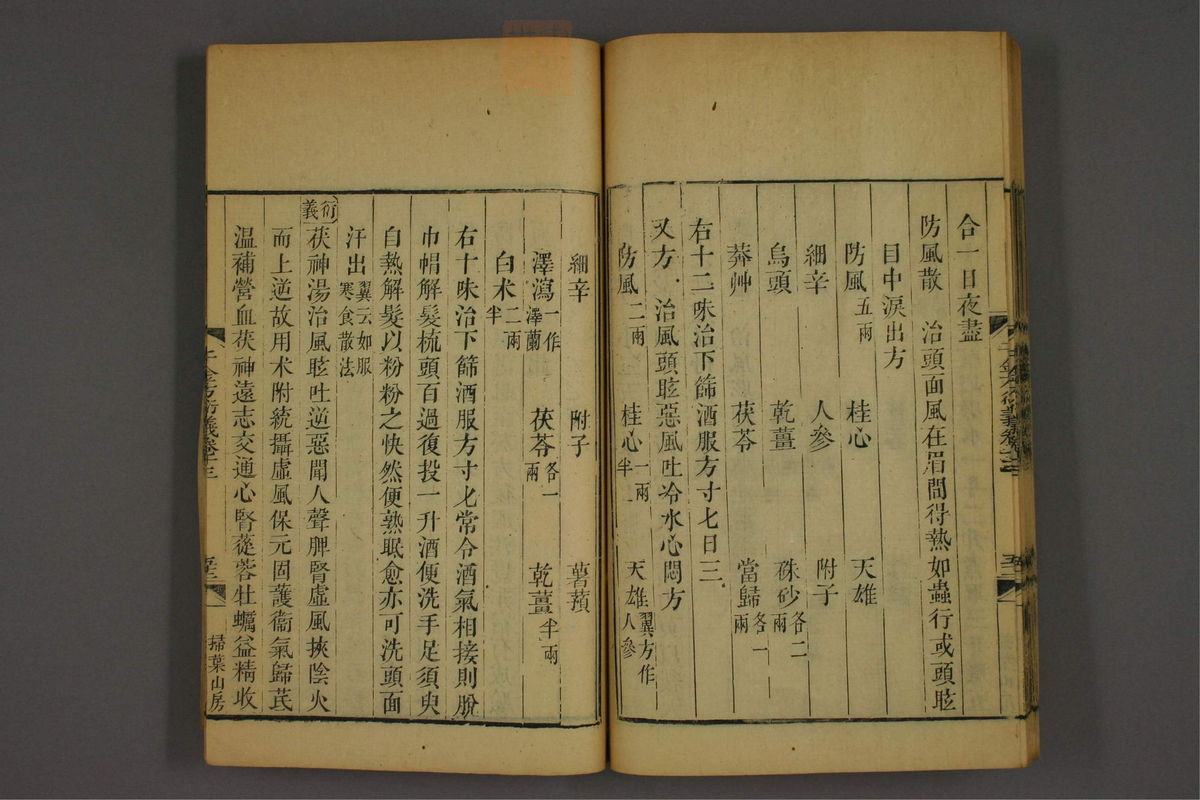 合一日夜盡
防風散　治頭面風在眉間得熱如蟲行或頭眩
目中淚出方
防風五兩　桂心　天雄
細辛　人參　附子
烏頭　乾薑　硃砂各二兩
莽艸　茯苓　當歸各一兩
右十二味治下篩酒服方寸七日三
又方　治風頭眩惡風吐冷水心悶方
防風二兩　桂心一兩半　天雄翼方作人參
細辛　附子　薯蕷
澤瀉一作澤蘭　茯苓各一兩　乾薑半兩
白朮二兩半
右十味治下篩酒服方寸匕常令酒氣相接則脫
巾帽解髮梳頭百過復投一升酒便洗手足須臾
自熱解髮以粉粉之快然便熟眠愈亦可洗頭面
汗出翼云如服寒食散法
衍義
茯神湯治風眩吐逆惡聞人聲脾腎虛風挾陰火
而上逆故用朮附統攝虛風保元固護衞氣歸芪
温補營血茯神遠志交通心腎蓯蓉牡蠣益精收
千金方衍義卷十三
五十二
掃葉山房